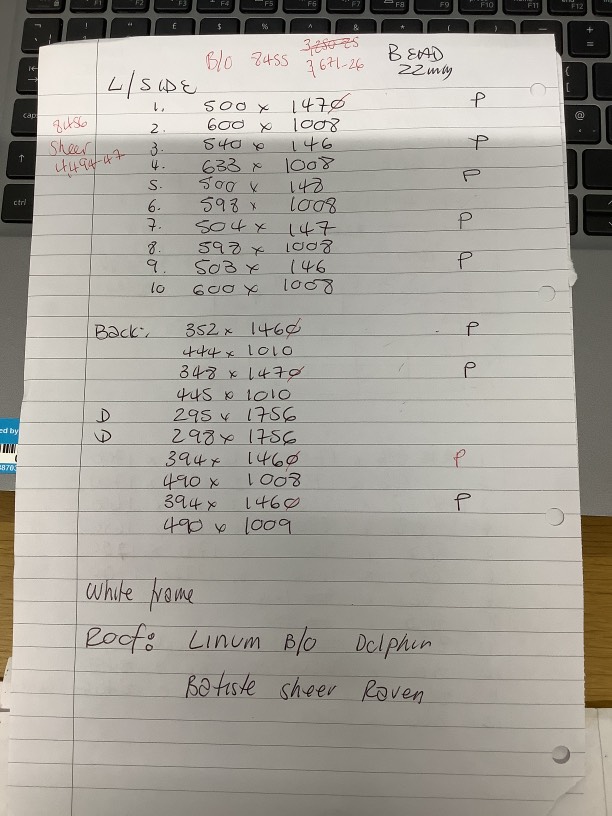 B/O 8455 3,250-25 BEAD
3,671-26 22mm
L/SIDE
1. 500 x 1470 P
8456 2. 600 x 1008
Sheer 3. 540 x 146 P
4494-47 4. 633 x 1008
5. 500 x 148 P
6. 598 x 1008
7. 504 x 147 P
8. 598 x 1008
9. 503 x 146 P
10 600 x 1008
Back:. 352 x 1460 P
444 x 1010
348 x 1470 P
445 x 1010
D 295 x 1756
D 298 x 1756
394 x 1460 P
490 x 1008
394 x 1460 P
490 x 1009
White frame
Roof: Linum B/O Dolphin
Batiste sheer Raven